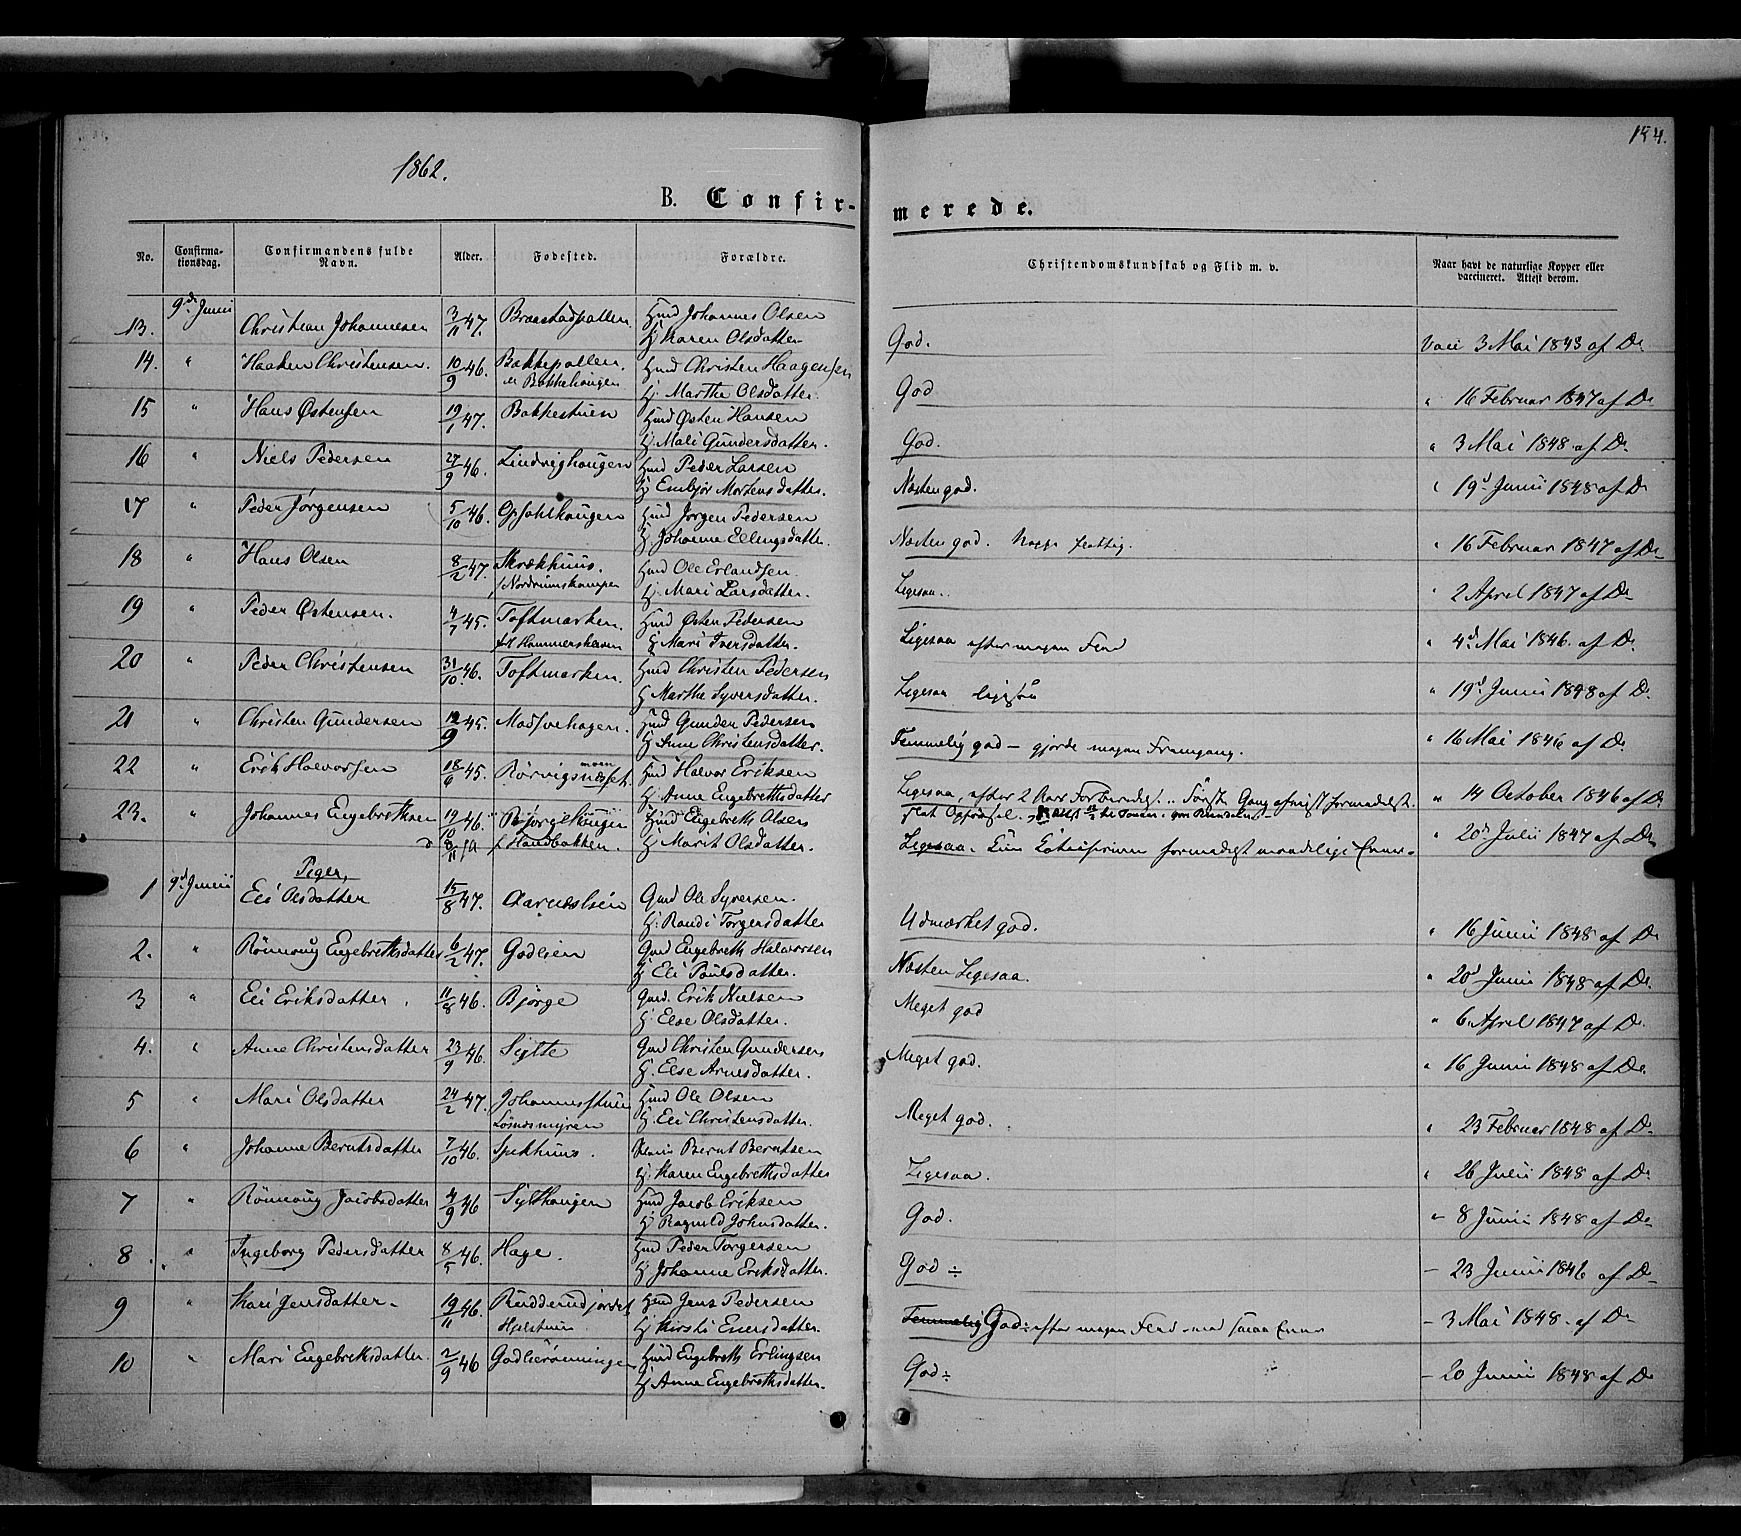 1862.
184.
B. Confir-
merede.
No.
Confirma-
tionsdag.
Confirmandens fulde
Navn.
Alder.
Fødested.
Forældre.
Christendomskundskab og Flid m. v.
Naar havt de naturlige Kopper eller
vaccineret. Attest derom.
13. 9d. Junii Christian Johannesen 3/11 47. Braastadpallen Huusmd Johannes Olsen
H. Karen Olsdatter
God. Vacc 3 Mai 1848 af Do
14. " Haaken Christensen. 10/9 46. Bakkepallen. Huusmd Christen Haagensen
H. Marthe Olsdatter.
God " 16 Februar 1847 af Do
15 " Hans Østensen 19/1 47. Bakkestuen Huusmd Østen Hansen
H. Mali Gundersdatter.
God. " 3 Mai 1848 af Do
16 " Niels Pedersen 27/9 46. Lindvighaugen Huusmd Peder Larsen
H. Embjør Mortensdatter.
Næsten god. " 19d Junii 1848 af Do
17 " Peder Jørgensen 5/10 46. Opsahlhaugen Huusmd Jørgen Pedersen
H. Johanne Ellingsdatter
Næsten god. " 16 Februar 1847 af Do
18 " Hans Olsen 8/2 47. Skrækhuus. Huusmd Ole Erlandsen
/Nordrumskampen H. Mari Larsdatter.
Ligesaa. " 2 April 1847 af Do
19 " Peder Østensen. 4/7 45. Toftmarken. Huusmd Østen Pedersen
H. Mari Iversdatter.
Ligesaa efter megen Flid " 4d. Mai 1846. af Do.
20 " Peder Christensen 31/10 46. Toftmarken. Huusmd Christen Pedersen
H. Marthe Syversdatter.
Ligesaa ligesaa " 19d Junii 1848 af Do.
21 " Christen Gundersen 12/9 45. Madsvehagen. Huusmd Gunder Pedersen
H. Anne Christensdatter.
Temmelig god – gjorde megen Fremgang. " 16 Mai 1846 af Do
22 " Erik Halvorsen 18/6 45. Huusmd Halvor Eriksen
H. Anne Engebretsdatter
Ligesaa, efter 2 Aars Forberedelse. Første Gang afvist formedelst
slet Opførsel. " 14 October 1846 af Do
23. Johannes Engebrethsen 19/10 46. Bjørgehaugen Huusmd Engebreth Olsen
/Haudbakken. H. Marit Olsdatter.
Ligesaa. " 20d Julii 1847 af Do
Piger,
1 9d. Junii Eli Olsdatter 15/8 47. Aarneslien Gmd Ole Syversen.
H. Randi Torgersdatter
Udmærket god. " 16 Junii 1848 af Do
2. " Rønnaug Engebrethsdatter 6/2 47. Godlien Gmd Engebreth Halvorsen
H. Eli Poulsdatter.
Næsten Ligesaa. " 20d Junii 1848 af Do.
3 " Eli Eriksdatter. 11/8 46. Bjørge Gmd. Erik Nielsen
H. Else Olsdatter.
Meget god " 6 April 1847 af Do.
4. " Anne Christensdatter 23/9 46. Sylte Gmd Christen Gundersen
H. Else Arnesdatter.
Meget god. " 16 Junii 1848 af Do.
5 " Mari Olsdatter 24/2 47. Johannesstuen Huusmd Ole Olsen
Løsnesmyren H. Eli Christensdatter.
Meget god. " 23 Februar 1848 af Do
6 " Johanne Berntsdatter 7/10 46. Spikhuus. Bernt Berntsen
H. Karen Engebrethsdatter
Ligesaa. " 26 Julii 1848 af Do
7 " Rønnaug Jacobsdatter 4/9 46 Sylthaugen Huusmd Jacob Eriksen
H. Ragnild Johnsdatter.
God. " 8 Junii 1848 af Do
8 " Ingeborg Pedersdatter 8/5 46. Hage. Huusmd Peder Torgersen
H. Johanne Eriksdatter.
God ÷ – 23 Junii 1846 af Do
9 " Kari Jensdatter. 19/11 46. Rudderudjordet Huusmd Jens Pedersen
Hjelstuen H. Kirsti Enersdatter.
Temmelig God: efter megen Flid med – 3 Mai 1848. af Do
10 " Mari Engebrethsdatter. 2/9 46 Godlirønningen Huusmd Engebreth Erlingsen
H. Anne Engebrethsdatter.
God ÷ – 20 Junii 1848 af Do